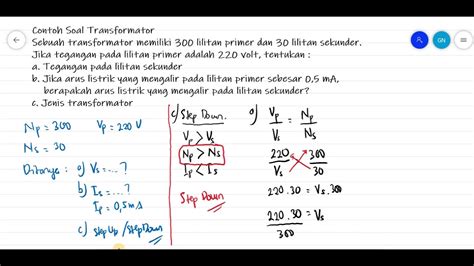 Contoh Soal Transformator
Sebuah transformator memiliki 300 lilitan primer dan 30 lilitan sekunder.
Jika tegangan pada lilitan primer adalah 220 volt, tentukan :
a. Tegangan pada lilitan sekunder
b. Jika arus listrik yang mengalir pada lilitan primer sebesar 0,5 mA,
berapakah arus listrik yang mengalir pada lilitan sekunder?
c. Jenis transformator
GN
Np = 300 Vp = 220 V
Ns = 30
Ditanya : a) Vs = ...?
b) Is = ...?
Ip = 0,5 mA
c) Step Up / Step Down
c) Step Down.
Vp > Vs
Np > Ns
Ip < Is
Step Down
a) Vp/Vs = Np/Ns
220/Vs = 300/30
220 . 30 = Vs . 300
220 . 30/300 = Vs